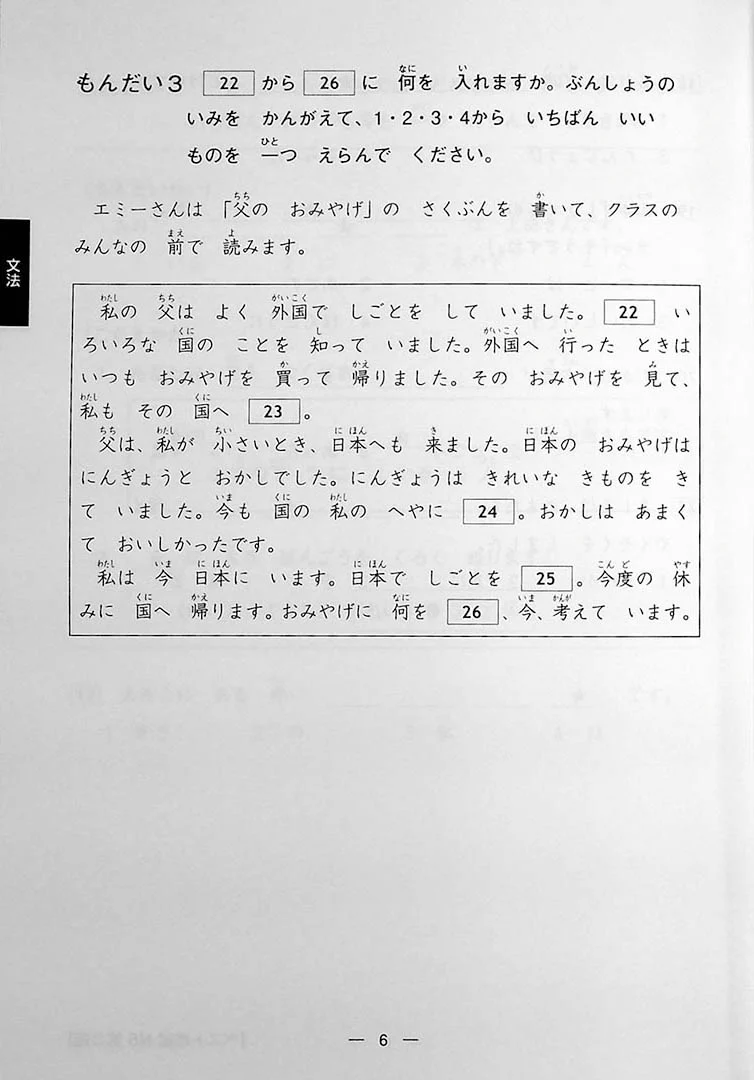 もんだい3 22 から 26 に 何を 入れますか。ぶんしょうの
いみを かんがえて、1・2・3・4から いちばん いい
ものを 一つ えらんで ください。
エミーさんは 「父の おみやげ」の さくぶんを 書いて、クラスの
みんなの 前で 読みます。
文法
私の 父は よく 外国で しごとを して いました。 22 い
ろいろな 国の ことを 知って いました。外国へ 行った ときは
いつも おみやげを 買って 帰りました。その おみやげを 見て、
私も その 国へ 23 。
父は、私が 小さいとき、日本へも 来ました。日本の おみやげは
にんぎょうと おかしでした。にんぎょうは きれいな きものを き
て いました。今も 国の 私の へやに 24 。おかしは あまく
て おいしかったです。
私は 今 日本に います。日本で しごとを 25 。今度の 休
みに 国へ 帰ります。おみやげに 何を 26 、今、考えて います。
— 6 —